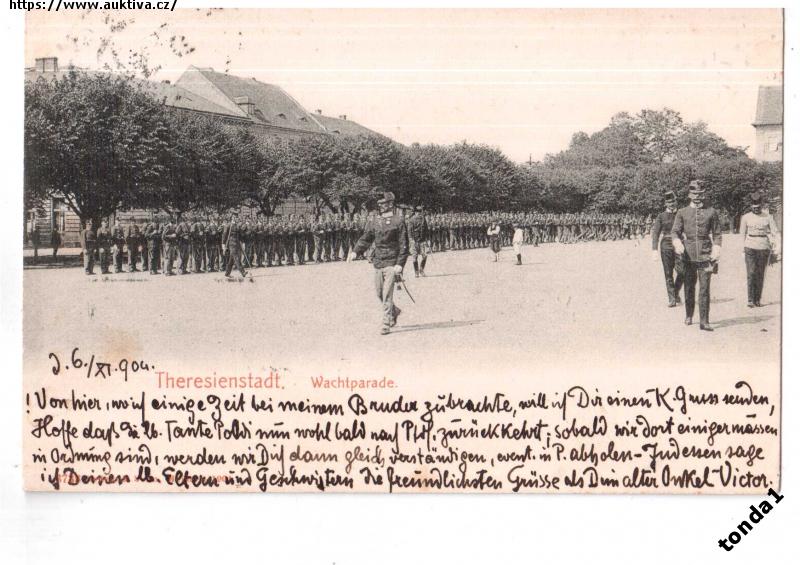 https://www.auktiva.cz/
d. 6./XI. 904.
Theresienstadt. Wachtparade.
! Von hier, wo ich einige Zeit bei meinem Bruder zubrachte, will ich Dir einen K. Gruss senden,
Hoffe daß die lb. Tante Poldi nun wohl bald nach zurückkehrt, sobald wir dort einigermassen
in Ordnung sind, werden wir Dich dann gleich verständigen, event. in P. abholen - Indessen sage
ich Deinen lb. Eltern und Geschwistern die freundlichsten Grüsse als Dein alter Onkel Victor.
tonda1